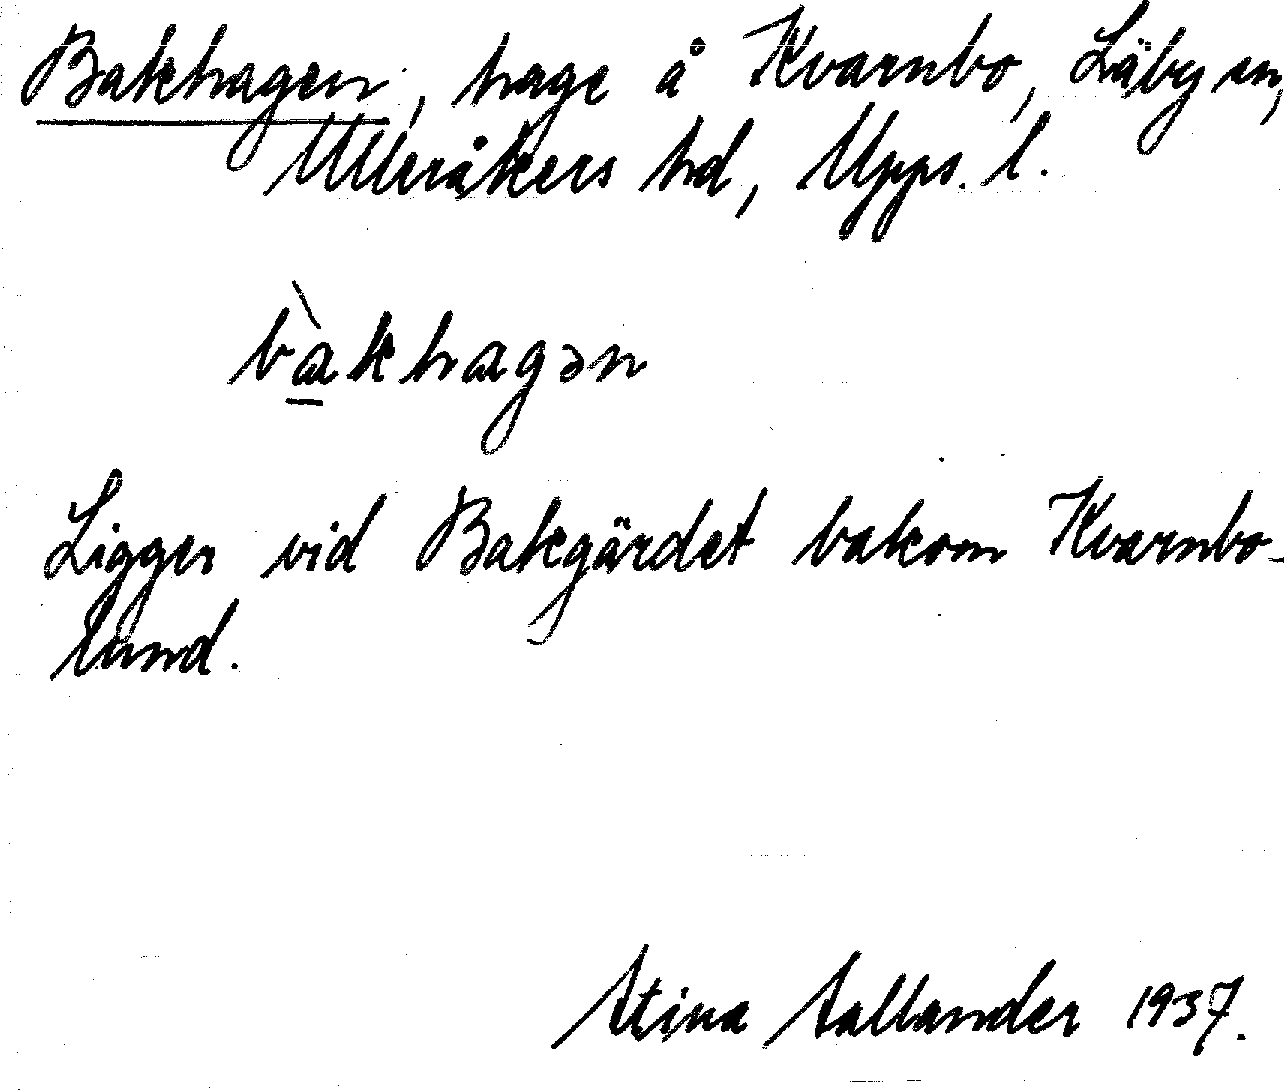 Bakhagen, hage å Kvarnbo, Läby sn,
Ulleråkers hd, Upps. l.
bàkhagən
Ligger vid Bakgärdet bakom Kvarnbo-
lund.
Stina Sallander 1937.